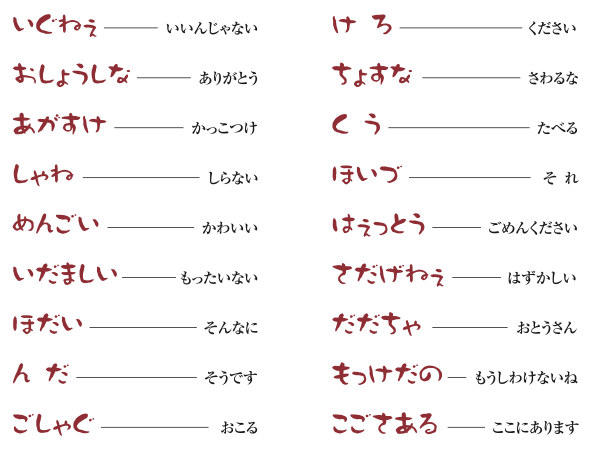 いぐねぇ いいんじゃない
おしょうしな ありがとう
あがすけ かっこつけ
しゃね しらない
めんごい かわいい
いだましい もったいない
ほだい そんなに
んだ そうです
ごしゃぐ おこる
けろ ください
ちょすな さわるな
くう たべる
ほいづ それ
はぇっとう ごめんください
さだげねぇ はずかしい
だだちゃ おとうさん
もっけだの もうしわけないね
こごさある ここにあります